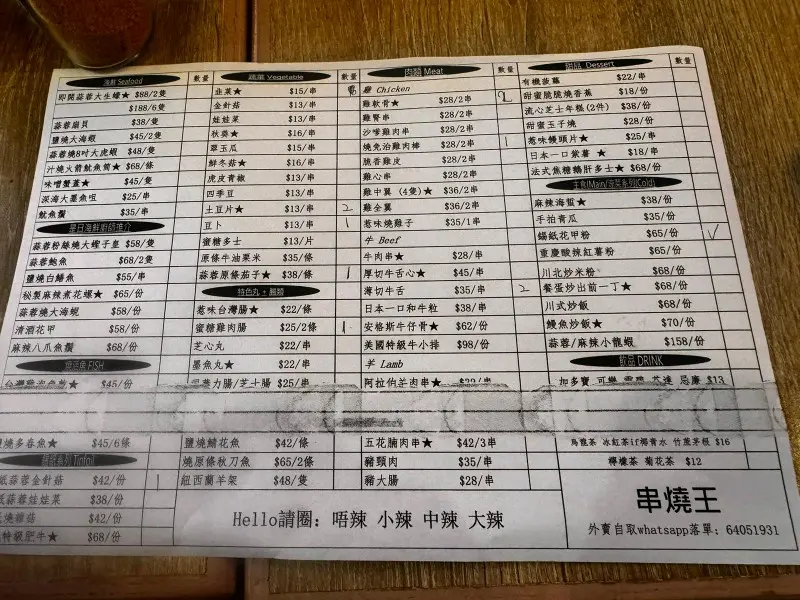 海鮮 Seafood 數量
即開蒜蓉大生蠔★ $88/2隻
$188/6隻
蒜蓉扇貝 $38/隻
鹽燒大海蝦 $45/2隻
蒜蓉燒8吋大虎蝦 $48/隻
汁燒火箭魷魚筒★ $68/條
味噌蟹蓋★ $45/隻
深海大墨魚咀 $25/串
魷魚鬚 $35/串
是日海鮮廚師推介
蒜蓉粉絲燒大蟶子皇 $58/隻
蒜蓉鮑魚 $68/2隻
鹽燒白鱔魚 $55/串
秘製麻辣煮花螺★ $65/份
蒜蓉燒大海蜆 $58/份
清酒花甲 $58/份
麻辣八爪魚鬚 $68/份
燒活魚 FISH
$45/份
鹽燒多春魚★ $45/6條
紙蒜蓉金針菇 $42/份
紙蒜蓉娃娃菜 $38/份
燒雜菇 $42/份
特級肥牛★ $68/份
蔬菜 Vegetable 數量
韭菜★ $15/串
金針菇 $13/串
娃娃菜 $13/串
秋葵★ $16/串
翠玉瓜 $15/串
鮮冬菇★ $16/串
虎皮青椒 $13/串
四季豆 $13/串
土豆片★ $13/串 2
豆卜 $13/串 1
蜜糖多士 $13/片
原條牛油粟米 $35/條
蒜蓉原條茄子★ $38/條 1
特色丸 + 腸類
惹味台灣腸★ $22/條
蜜糖雞肉腸 $25/2條 1
芝心丸 $22/串
墨魚丸★ $22/串
力腸/芝士腸 $25/串
鹽燒鯖花魚 $42/條
燒原條秋刀魚 $65/2條
紐西蘭羊架 $48/隻
肉類 Meat 數量
雞 Chicken
雞軟骨★ $28/2串 2
雞腎串 $28/2串
沙嗲雞肉串 $28/2串
燒免治雞肉棒 $28/2串 1
脆香雞皮 $28/2串
雞心串 $28/2串
雞中翼 (4隻)★ $36/2串
雞全翼 $36/2串
惹味燒雞子 $35/1串
牛 Beef
牛肉串★ $28/串
厚切牛舌心★ $45/串
薄切牛舌 $35/串 2
日本一口和牛粒 $38/串
安格斯牛仔骨★ $62/份
美國特級牛小排 $98/份
羊 Lamb
阿拉伯羊肉串★
五花腩肉串★ $42/3串
豬頸肉 $35/串
豬大腸 $28/串
甜品 Dessert 數量
有機菠蘿 $22/串
甜蜜脆脆燒香蕉 $18/份
流心芝士年糕(2件) $38/份
甜蜜玉子燒 $28/份
惹味饅頭片★ $25/串
日本一口紫薯 ★ $18/串
法式焦糖鵝肝多士★ $68/份
主食(Main/涼菜系列(Cold)
麻辣海蜇★ $38/份
手拍青瓜 $35/份
錫紙花甲粉 $65/份 ✓
重慶酸辣紅薯粉 $65/份
川北炒米粉 $68/份
餐蛋炒出前一丁★ $68/份
川式炒飯 $68/份
鰻魚炒飯★ $70/份
蒜蓉/麻辣小龍蝦 $158/份
飲品 DRINK
加多寶 可樂 雪碧 芬達 忌廉 $13
烏龍茶 冰紅茶 if椰青水 竹蔗茅根 $16
檸檬茶 菊花茶 $12
Hello請圈: 唔辣 小辣 中辣 大辣
串燒王
外賣自取whatsapp落單: 64051931